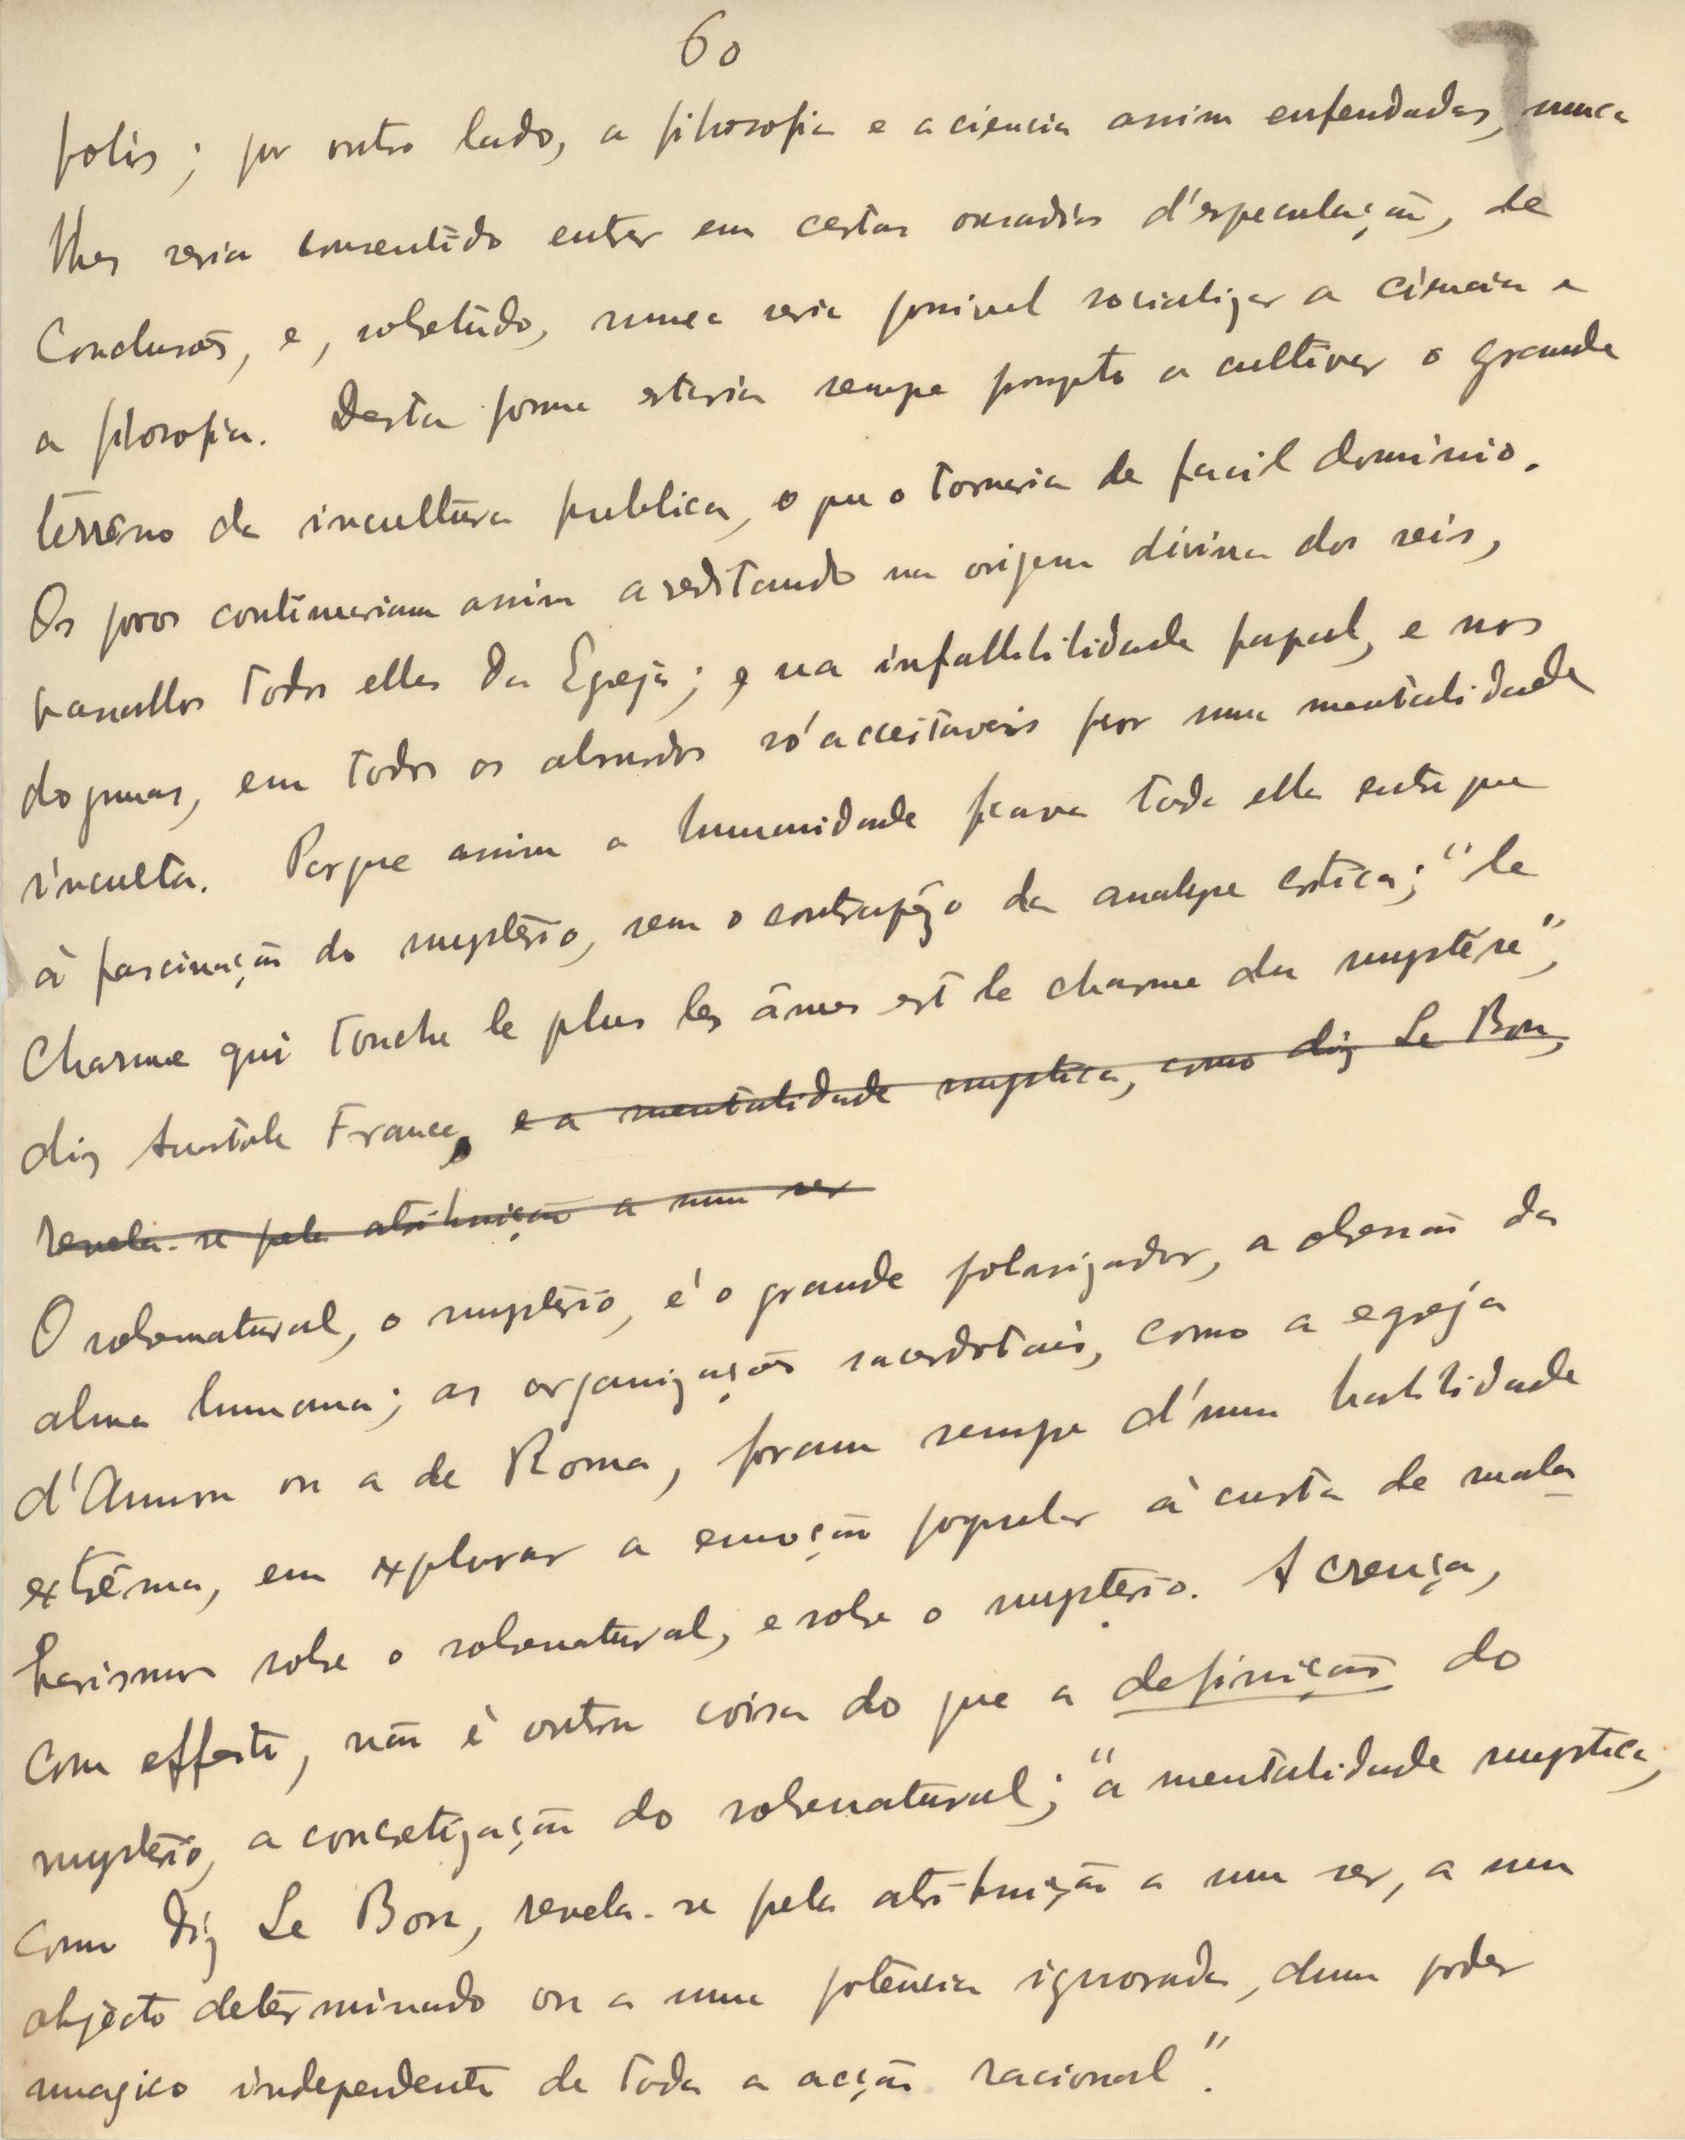 60
polis; por outro lado, a filosofia e a ciencia assim enfeudadas, nunca
lhes seria consentido entrar em certas ousadias d'especulação, de
conclusões, e, sobretudo, nunca seria possivel socializar a ciencia e
a filosofia. Desta forma estaria sempre prompto a cultivar o grande
terreno da incultura publica, o que o tornaria de facil dominio.
Os povos continuariam assim acreditando na origem divina dos reis,
vassallos todos elles da Egreja; e na infallibilidade papal, e nos
dogmas, em todos os absurdos só acceitaveis por uma mentalidade
inculta. Porque assim a humanidade ficava toda ella entregue
à fascinação do mysterio, sem o contrapêzo da analyse critica; "le
charme qui touche le plus les âmes est le charme du mystère",
diz Anatole France, e a mentalidade mystica, como diz Le Bon,
revela-se pela atribuição a um ser
O sobrenatural, o mysterio, é o grande polarizador, a obsessão da
alma humana; as organizações sacerdotais, como a egreja
d'Ammon ou a de Roma, foram sempre d'uma habilidade
extrêma, em explorar a emoção popular à custa de mala
barismos sobre o sobrenatural, e sobre o mysterio. A crença,
com effeito, não é outra coisa do que a definição do
mysterio, a concretização do sobrenatural; "a mentalidade mystica,
como diz Le Bon, revela-se pela atribuição a um ser, a um
objecto determinado ou a uma potencia ignorada, dum poder
magico independente de toda a acção racional".